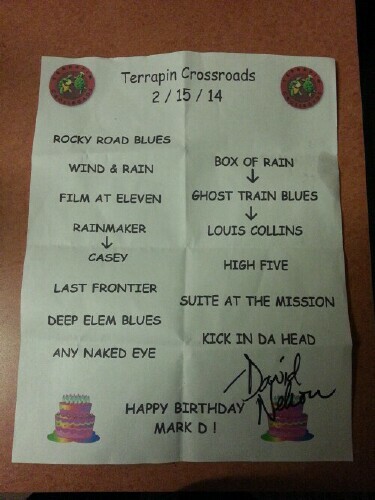 Terrapin Crossroads
2 / 15 / 14
ROCKY ROAD BLUES
WIND & RAIN
FILM AT ELEVEN
RAINMAKER
↓
CASEY
LAST FRONTIER
DEEP ELEM BLUES
ANY NAKED EYE
BOX OF RAIN
↓
GHOST TRAIN BLUES
↓
LOUIS COLLINS
HIGH FIVE
SUITE AT THE MISSION
KICK IN DA HEAD
David
Nelson
HAPPY BIRTHDAY
MARK D !